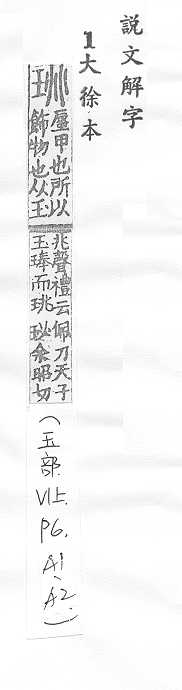 說文解字
1大徐本
珧
蜃甲也所以
飾物也从玉
兆聲禮云佩刀天子
玉琫而珧珌余昭切
(玉部. VI上. P6. A1、A2.)